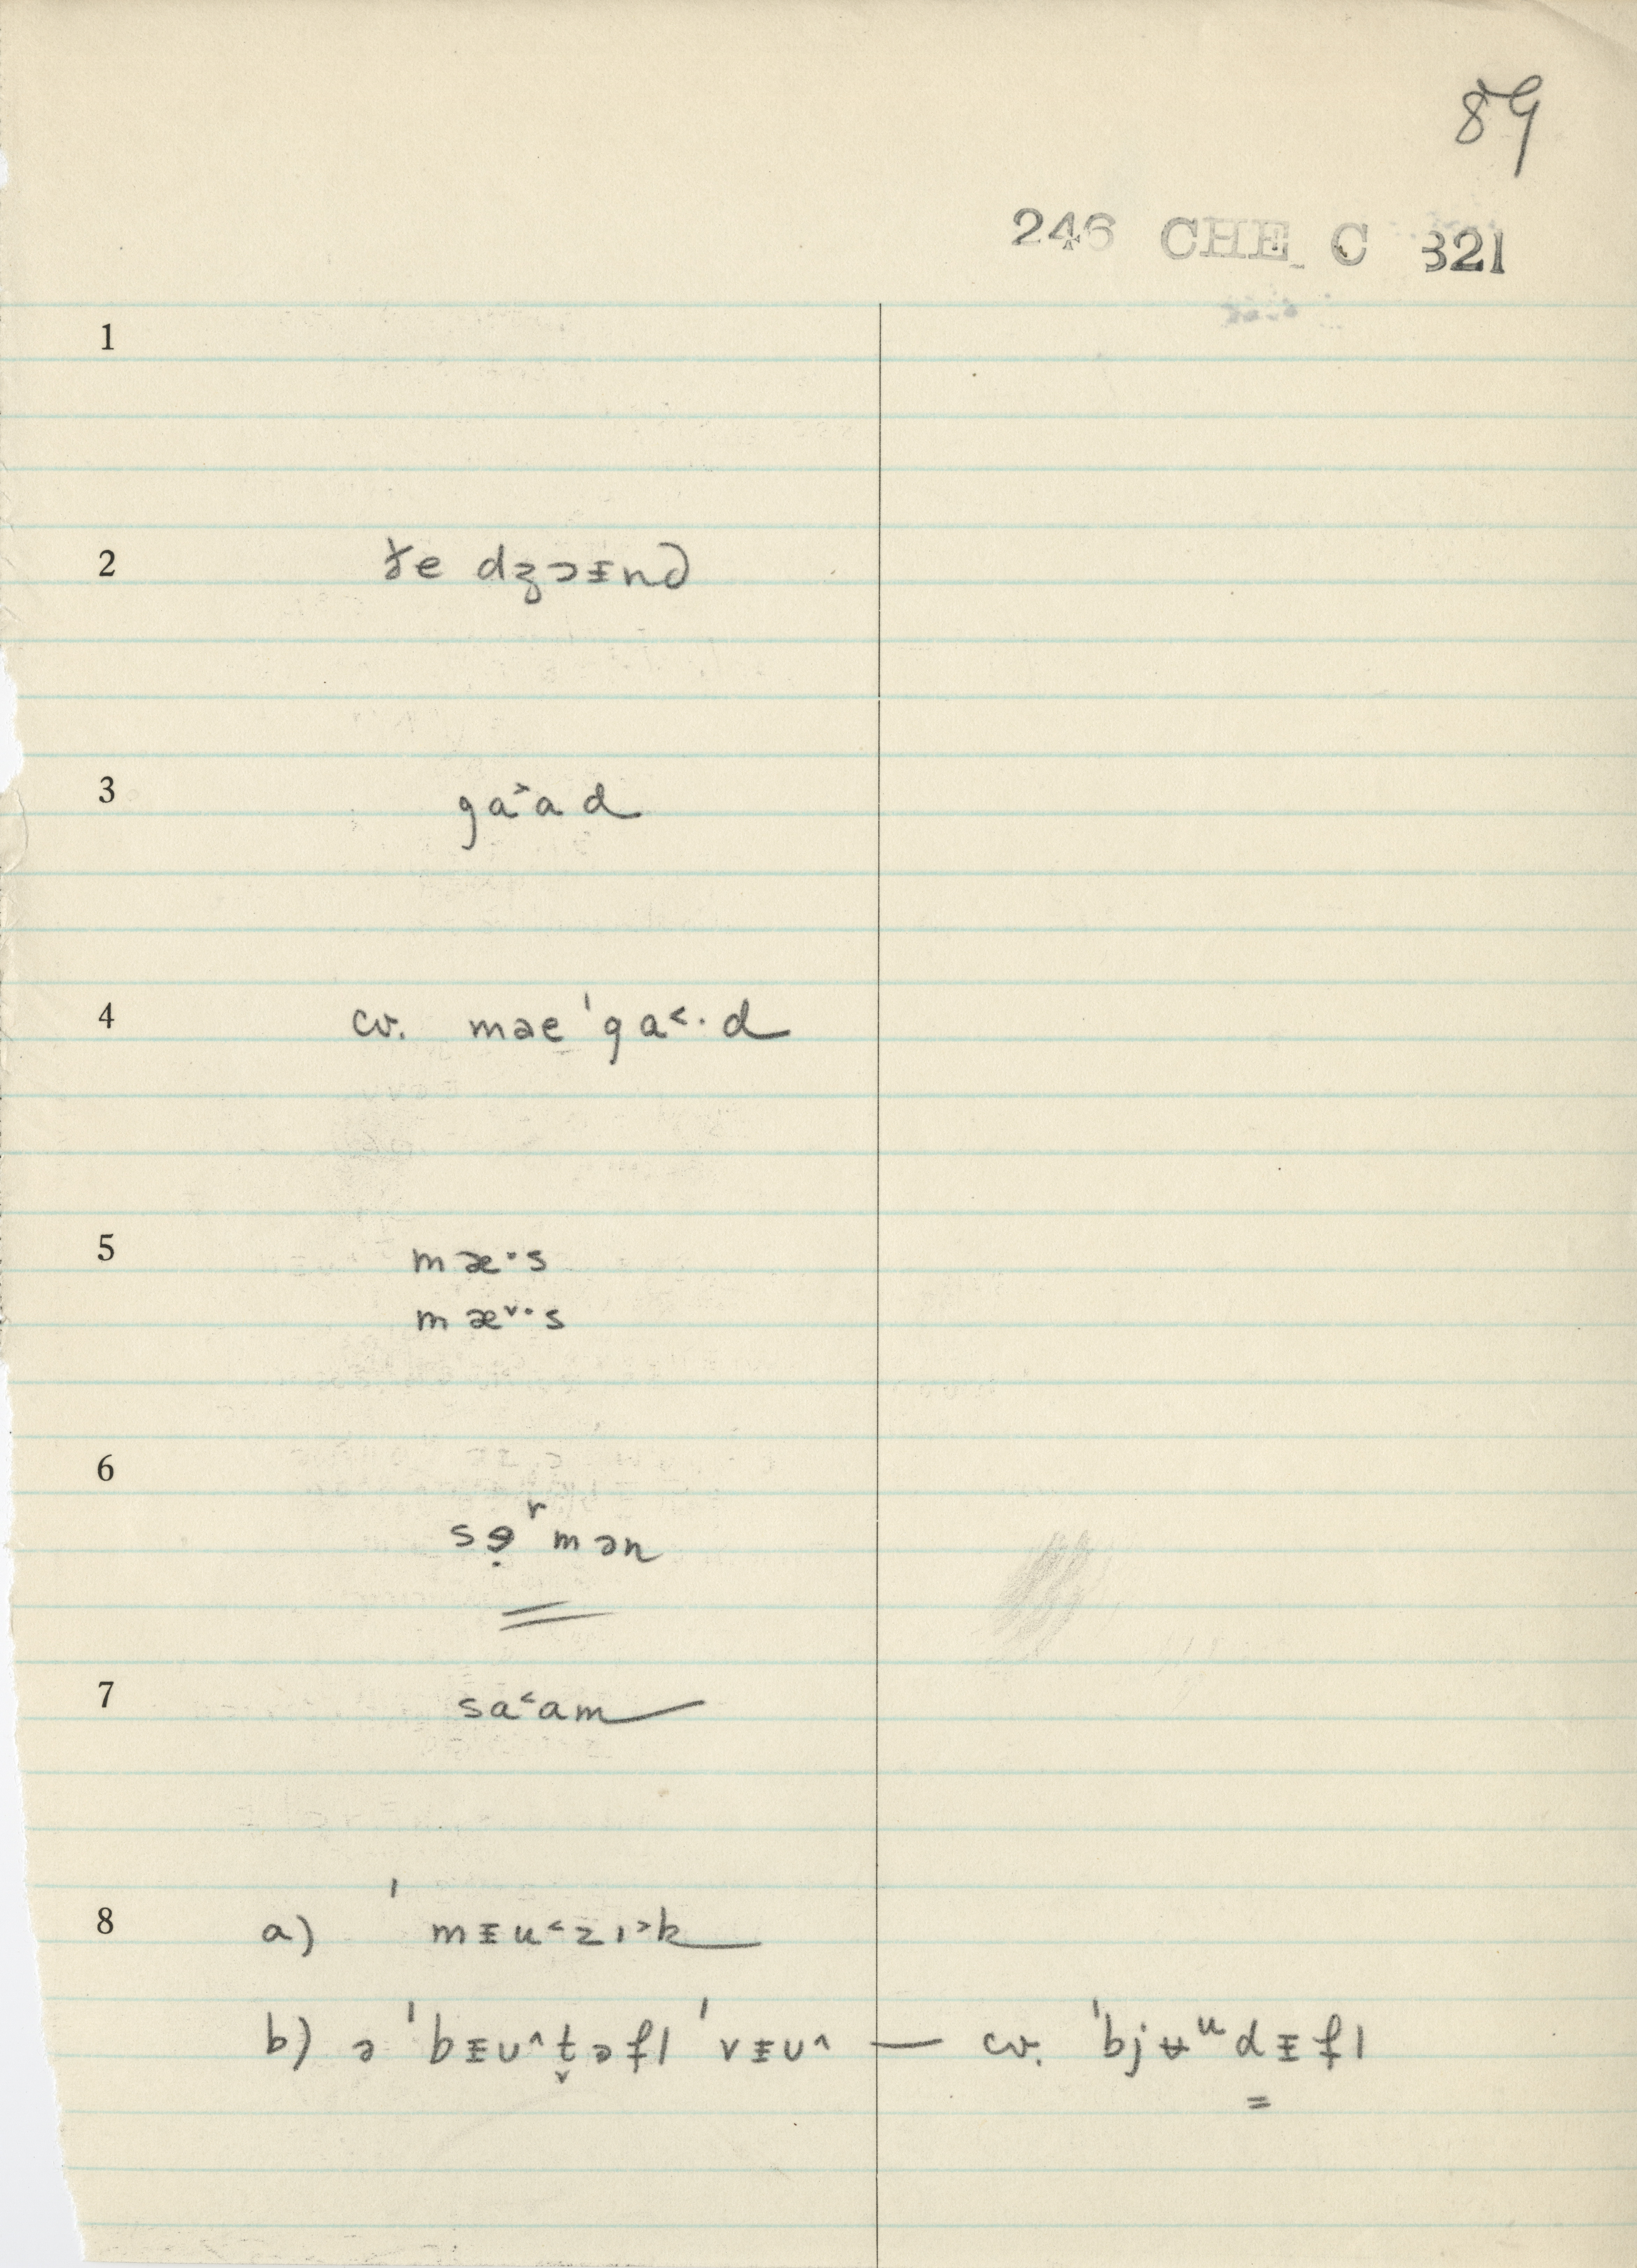 89
246 CHE C 321
1
2 ɤe dʒɔᵻnd
3 ga˃ad
4 cv. məe ˈga˂·d
5 mæ·s
mæ˅·s
6 sə̣ʳmən
7 sa˂am
8 a) ˈmᵻu˂zɪ˃k
b) ə ˈbᵻu˄t̬əfl ˈvᵻu˄ — cv. ˈbjʉᵘdᵻfl